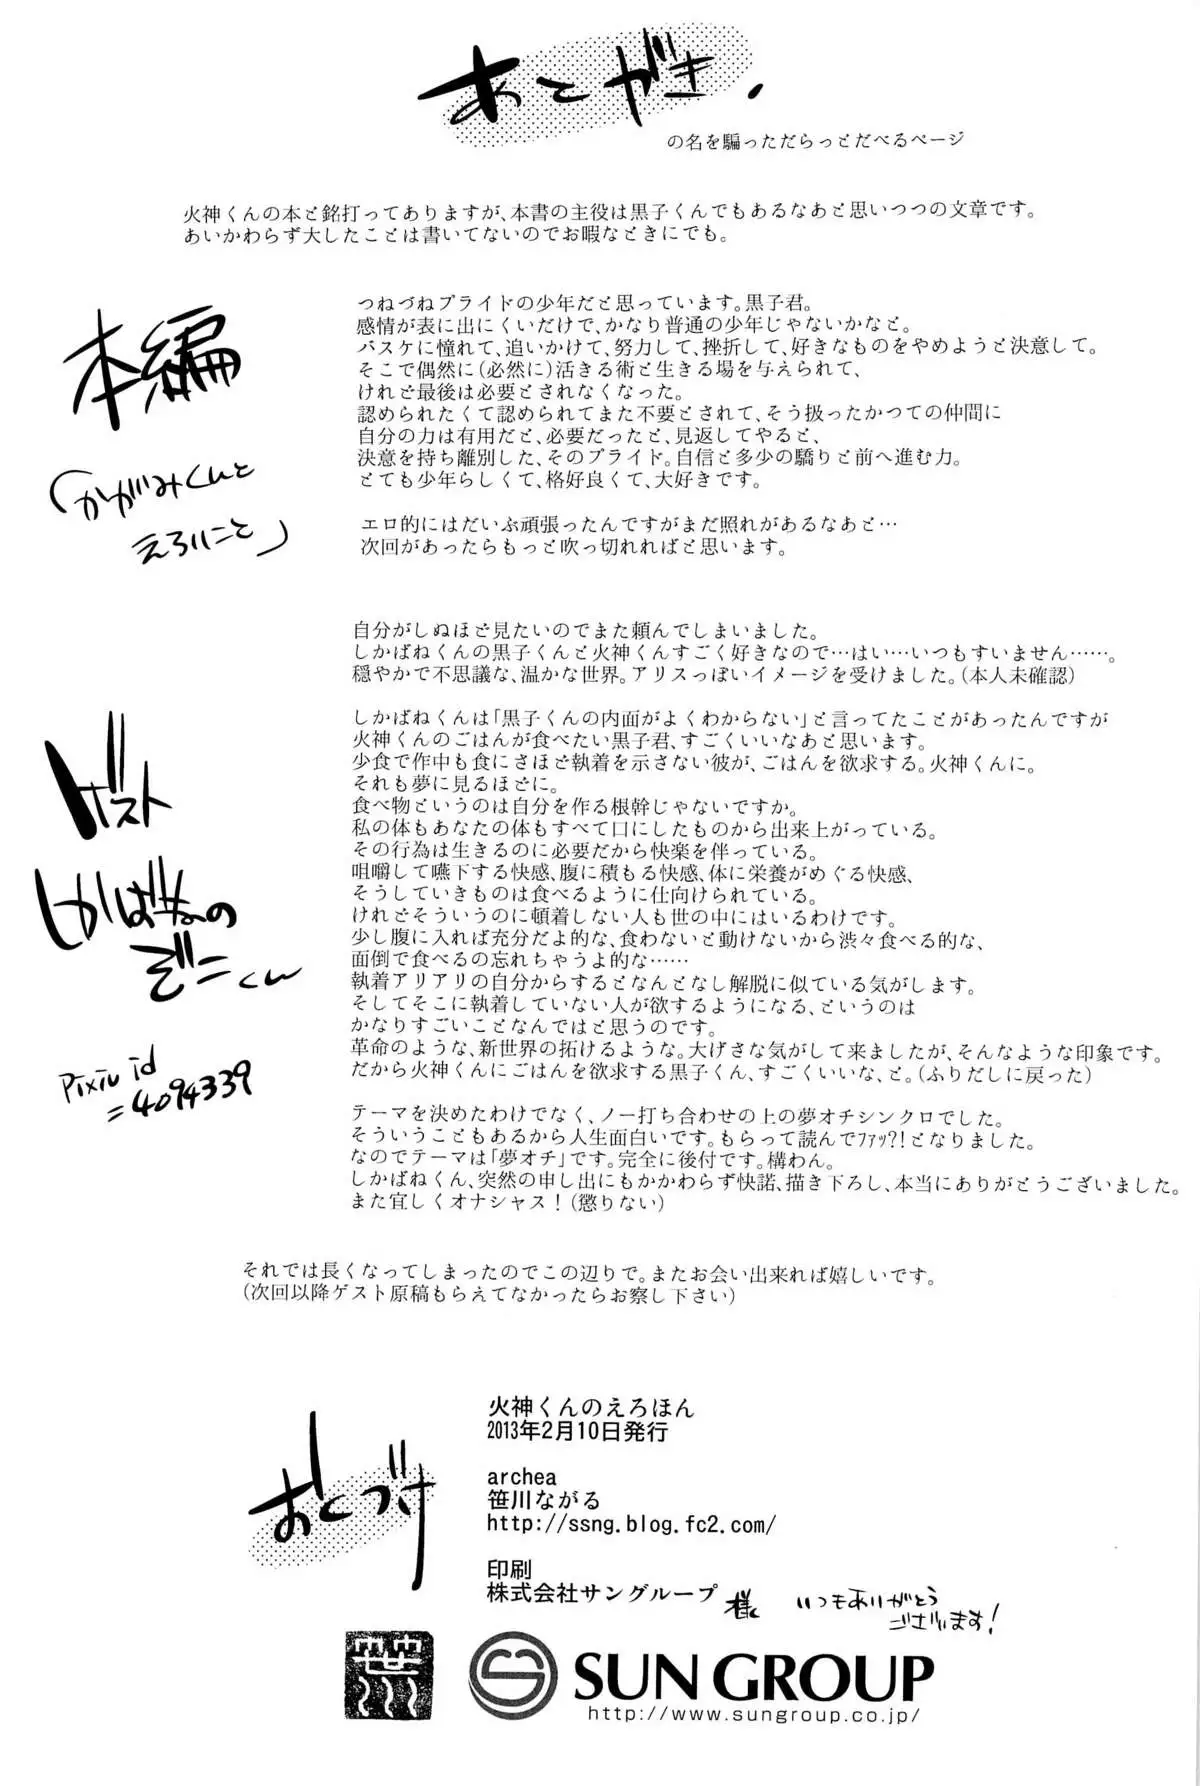 あとがき.
の名を騙っただらっとだべるページ
火神くんの本と銘打ってありますが、本書の主役は黒子くんでもあるなあと思いつつの文章です。
あいかわらず大したことは書いてないのでお暇なときにでも。
本編
「かがみくんと
えろいこと」
つねづねプライドの少年だと思っています。黒子君。
感情が表に出にくいだけで、かなり普通の少年じゃないかなと。
バスケに憧れて、追いかけて、努力して、挫折して、好きなものをやめようと決意して。
そこで偶然に(必然に)活きる術と生きる場を与えられて、
けれど最後は必要とされなくなった。
認められたくて認められてまた不要とされて、そう扱ったかつての仲間に
自分の力は有用だと、必要だったと、見返してやると、
決意を持ち離別した、そのプライド。自信と多少の驕りと前へ進む力。
とても少年らしくて、格好良くて、大好きです。
エロ的にはだいぶ頑張ったんですがまだ照れがあるなあと…
次回があったらもっと吹っ切れればと思います。
ゲスト
しかばねの
ぞにーくん
pixiv id
=4094339
自分がしぬほど見たいのでまた頼んでしまいました。
しかばねくんの黒子くんと火神くんすごく好きなので…はい…いつもすいません……。
穏やかで不思議な、温かな世界。アリスっぽいイメージを受けました。(本人未確認)
しかばねくんは「黒子くんの内面がよくわからない」と言ってたことがあったんですが
火神くんのごはんが食べたい黒子君、すごくいいなあと思います。
少食で作中も食にさほど執着を示さない彼が、ごはんを欲求する。火神くんに。
それも夢に見るほどに。
食べ物というのは自分を作る根幹じゃないですか。
私の体もあなたの体もすべて口にしたものから出来上がっている。
その行為は生きるのに必要だから快楽を伴っている。
咀嚼して嚥下する快感、腹に積もる快感、体に栄養がめぐる快感、
そうしていきものは食べるように仕向けられている。
けれどそういうのに頓着しない人も世の中にはいるわけです。
少し腹に入れば充分だよ的な、食わないと動けないから渋々食べる的な、
面倒で食べるの忘れちゃうよ的な……
執着アリアリの自分からするとなんとなし解脱に似ている気がします。
そしてそこに執着していない人が欲するようになる、というのは
かなりすごいことなんではと思うのです。
革命のような、新世界の拓けるような。大げさな気がして来ましたが、そんなような印象です。
だから火神くんにごはんを欲求する黒子くん、すごくいいな、と。(ふりだしに戻った)
テーマを決めたわけでなく、ノー打ち合わせの上の夢オチシンクロでした。
そういうこともあるから人生面白いです。もらって読んでﾌｧｯ?!となりました。
なのでテーマは「夢オチ」です。完全に後付です。構わん。
しかばねくん、突然の申し出にもかかわらず快諾、描き下ろし、本当にありがとうございました。
また宜しくオナシャス！(懲りない)
それでは長くなってしまったのでこの辺りで。またお会い出来れば嬉しいです。
(次回以降ゲスト原稿もらえてなかったらお察し下さい)
おくづけ
火神くんのえろほん
2013年2月10日発行
archea
笹川ながる
http://ssng.blog.fc2.com/
印刷
株式会社サングループ 様 いつもありがとう
ございます!
笹川
SUN GROUP
http://www.sungroup.co.jp/